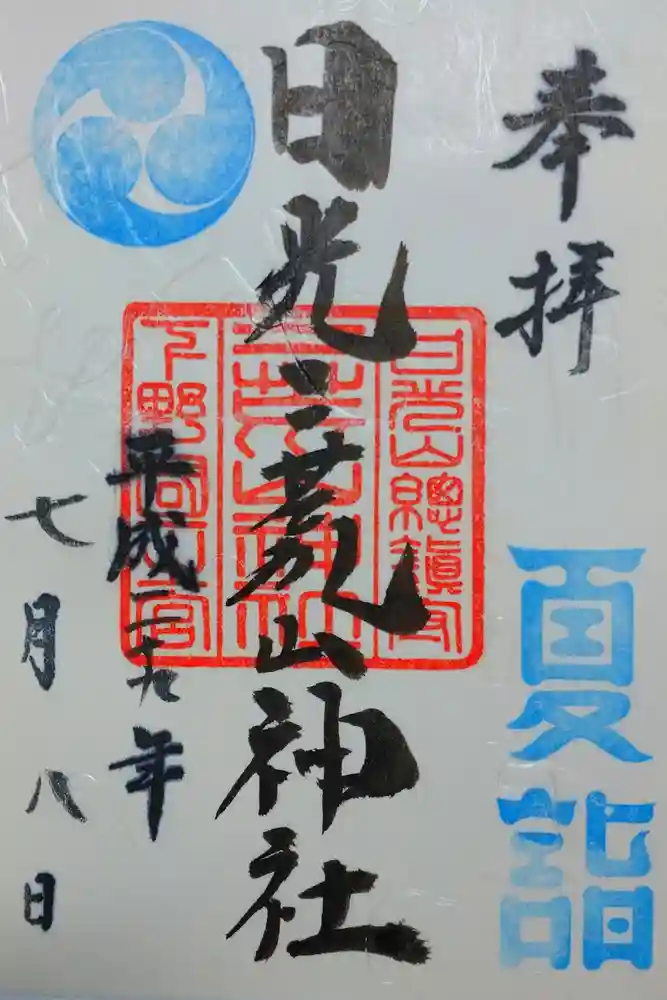 奉拝
夏詣
日光二荒山神社
日光山總鎮守
二荒山神社
平成二十九年
七月八日